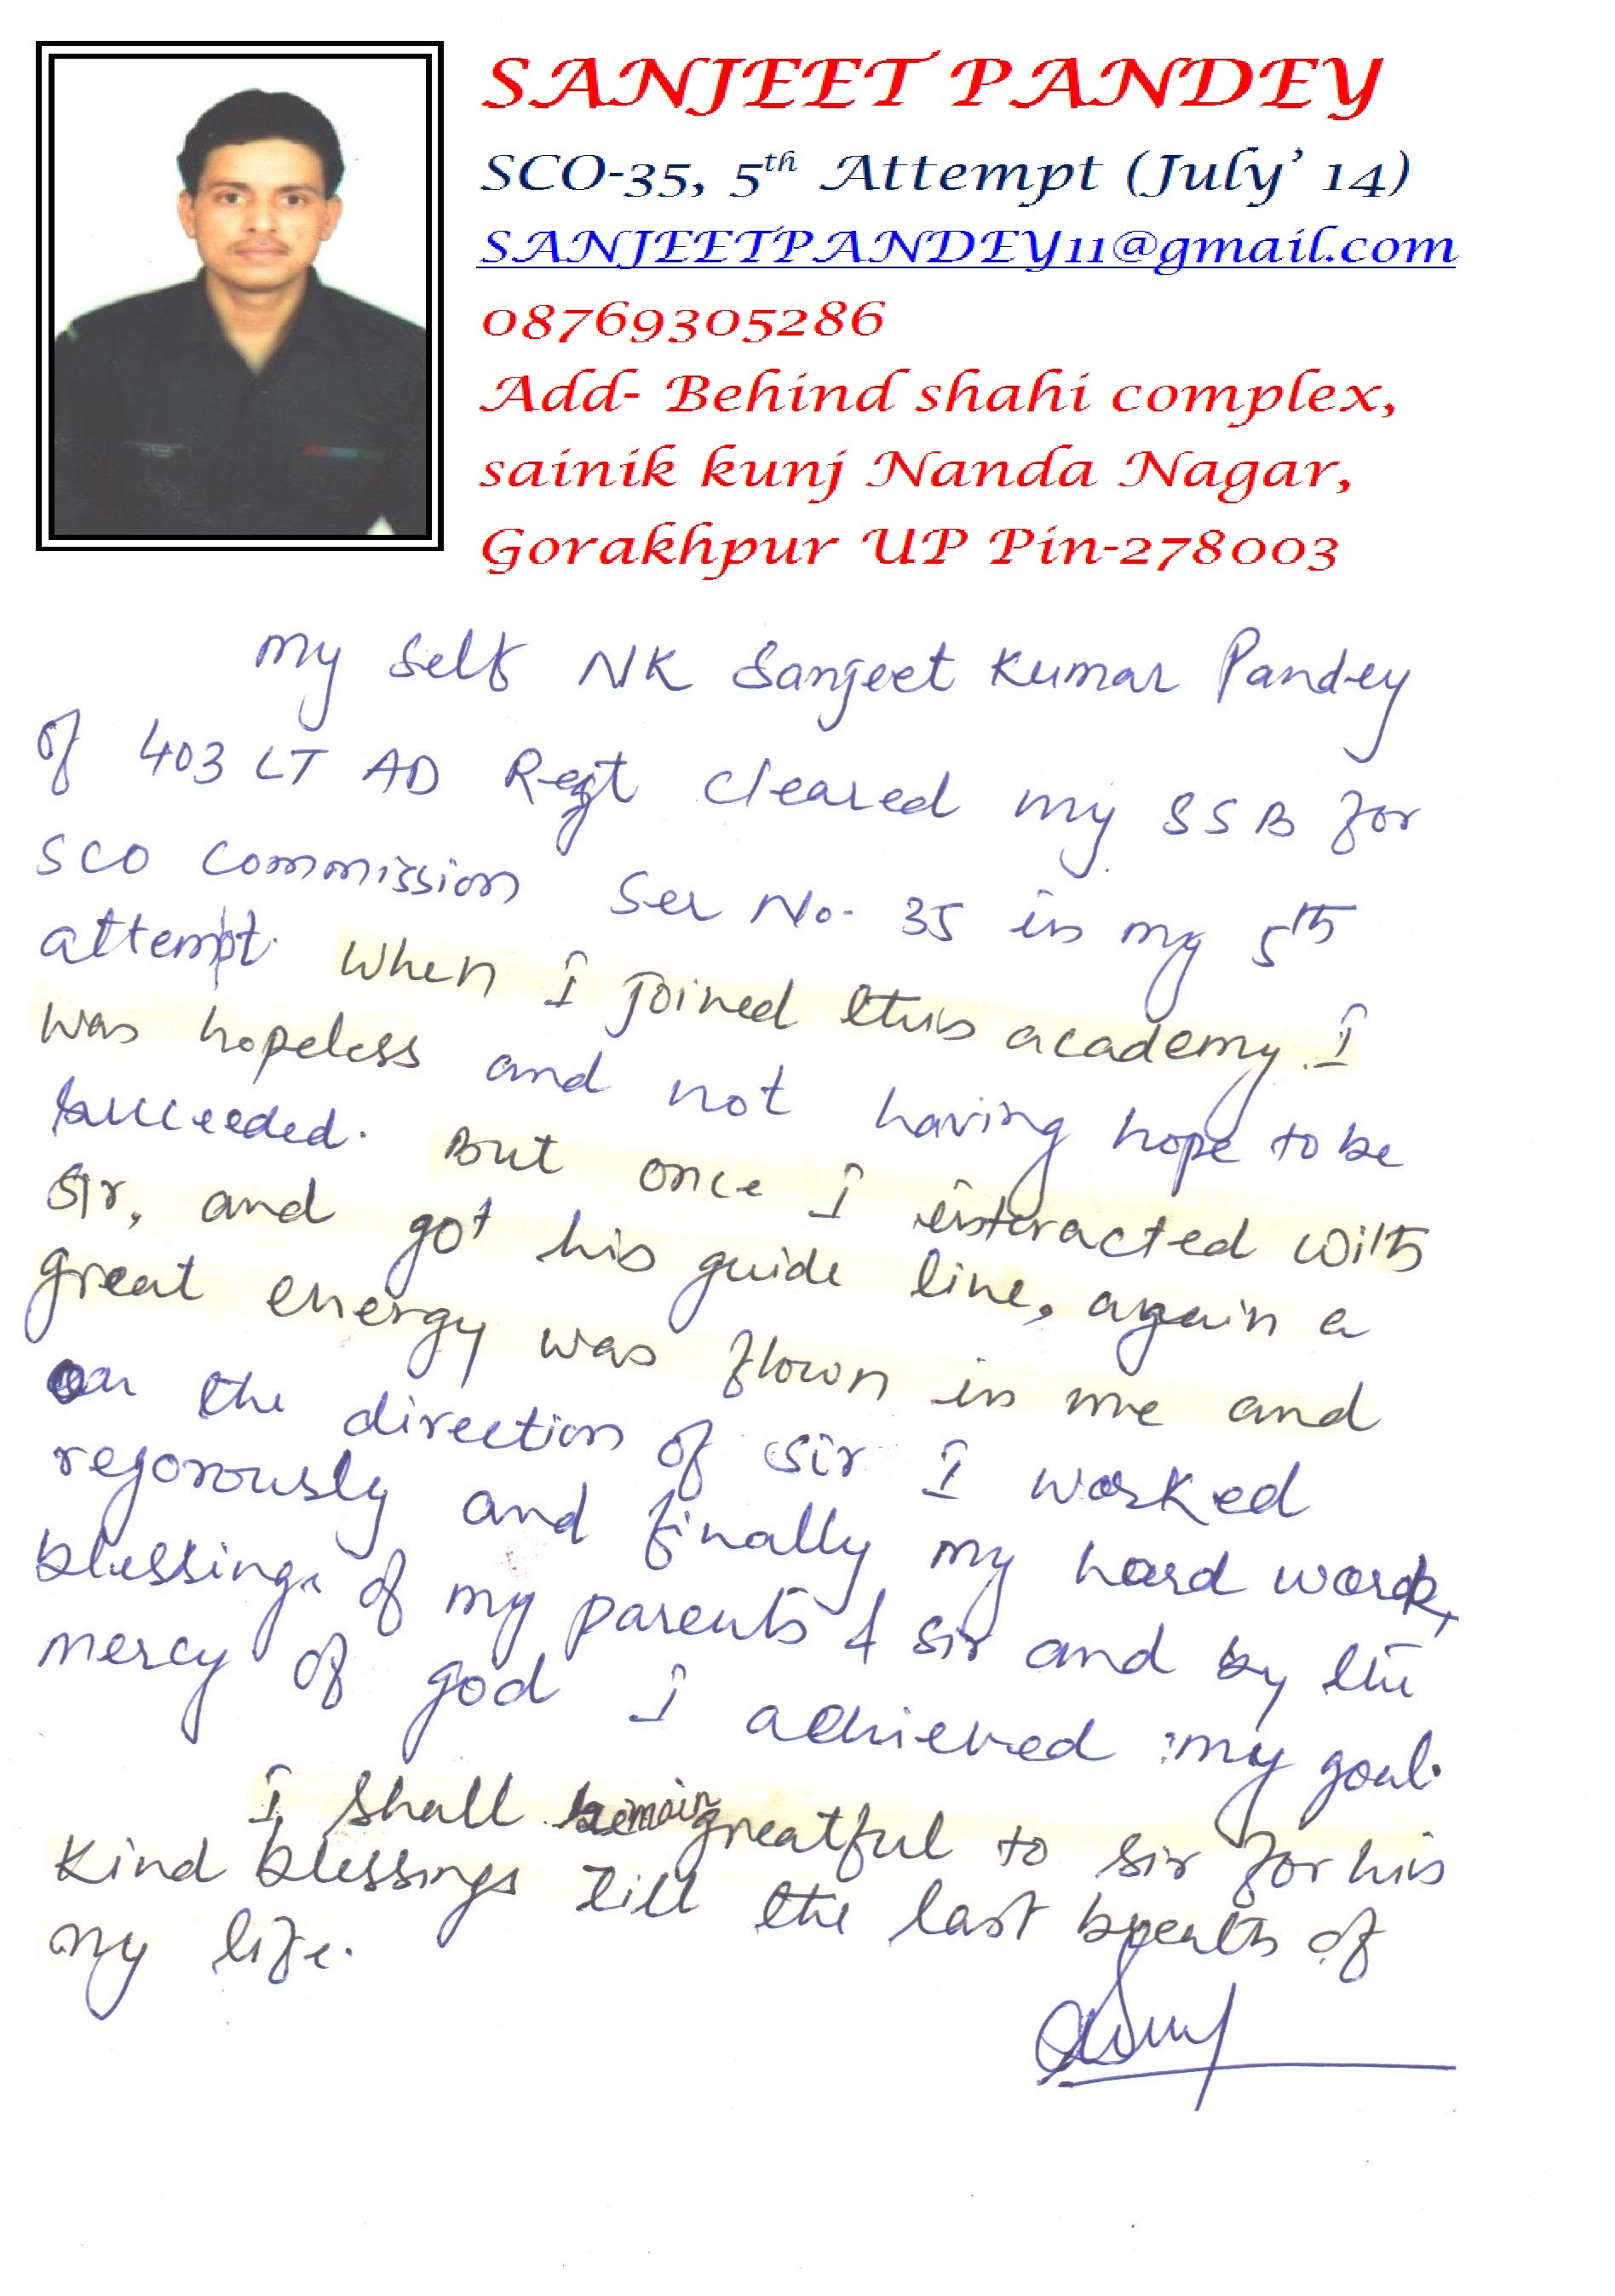 SANJEET PANDEY
SCO-35, 5th Attempt (July' 14)
SANJEETPANDEY11@gmail.com
08769305286
Add- Behind shahi complex,
sainik kunj Nanda Nagar,
Gorakhpur UP Pin-278003
My self NK Sanjeet Kumar Pandey
of 403 LT AD Regt cleared my SSB for
SCO commission Ser No- 35 in my 5th
attempt. When I joined this academy I
was hopeless and not having hope to be
succeeded. But once I interacted with
sir, and got his guide line, again a
great energy was flown in me and
on the direction of sir I worked
regorously and finally my hard work,
blessings of my parents & sir and by the
mercy of god I achieved my goal.
I shall remain greatful to sir for his
kind blessings till the last breath of
my life.